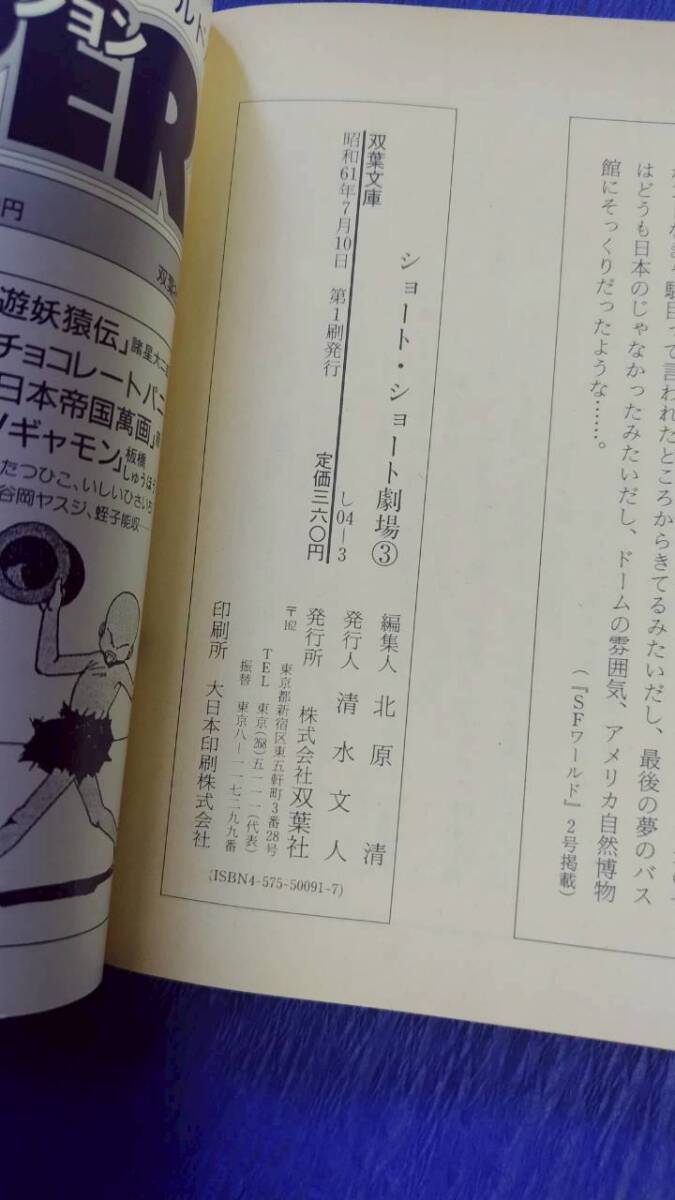 はどうも日本のじゃなかったみたいだし、ドームの雰囲気、アメリカ自然博物
館にそっくりだったような……。
(『SFワールド』2号掲載)
ショート・ショート劇場③
双葉文庫
し04―3
昭和61年7月10日 第1刷発行
定価三六〇円
編集人 北原 清
発行人 清水文人
発行所 株式会社双葉社
〒162 東京都新宿区東五軒町3番28号
TEL 東京(268)五一一一(代表)
振替 東京八―一一七二九九番
印刷所 大日本印刷株式会社
(ISBN4-575-50091-7)
ション
ER
円
遊妖猿伝」諸星大二
チョコレートパニ
日本帝国萬画」
ギャモン」板橋しゅうほう
たつひこ、いしいひさいち
谷岡ヤスジ、蛭子能収